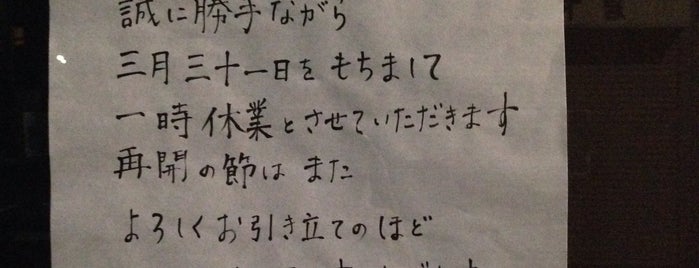 誠に勝手ながら
三月三十一日をもちまして
一時休業とさせていただきます
再開の節はまた
よろしくお引き立てのほど